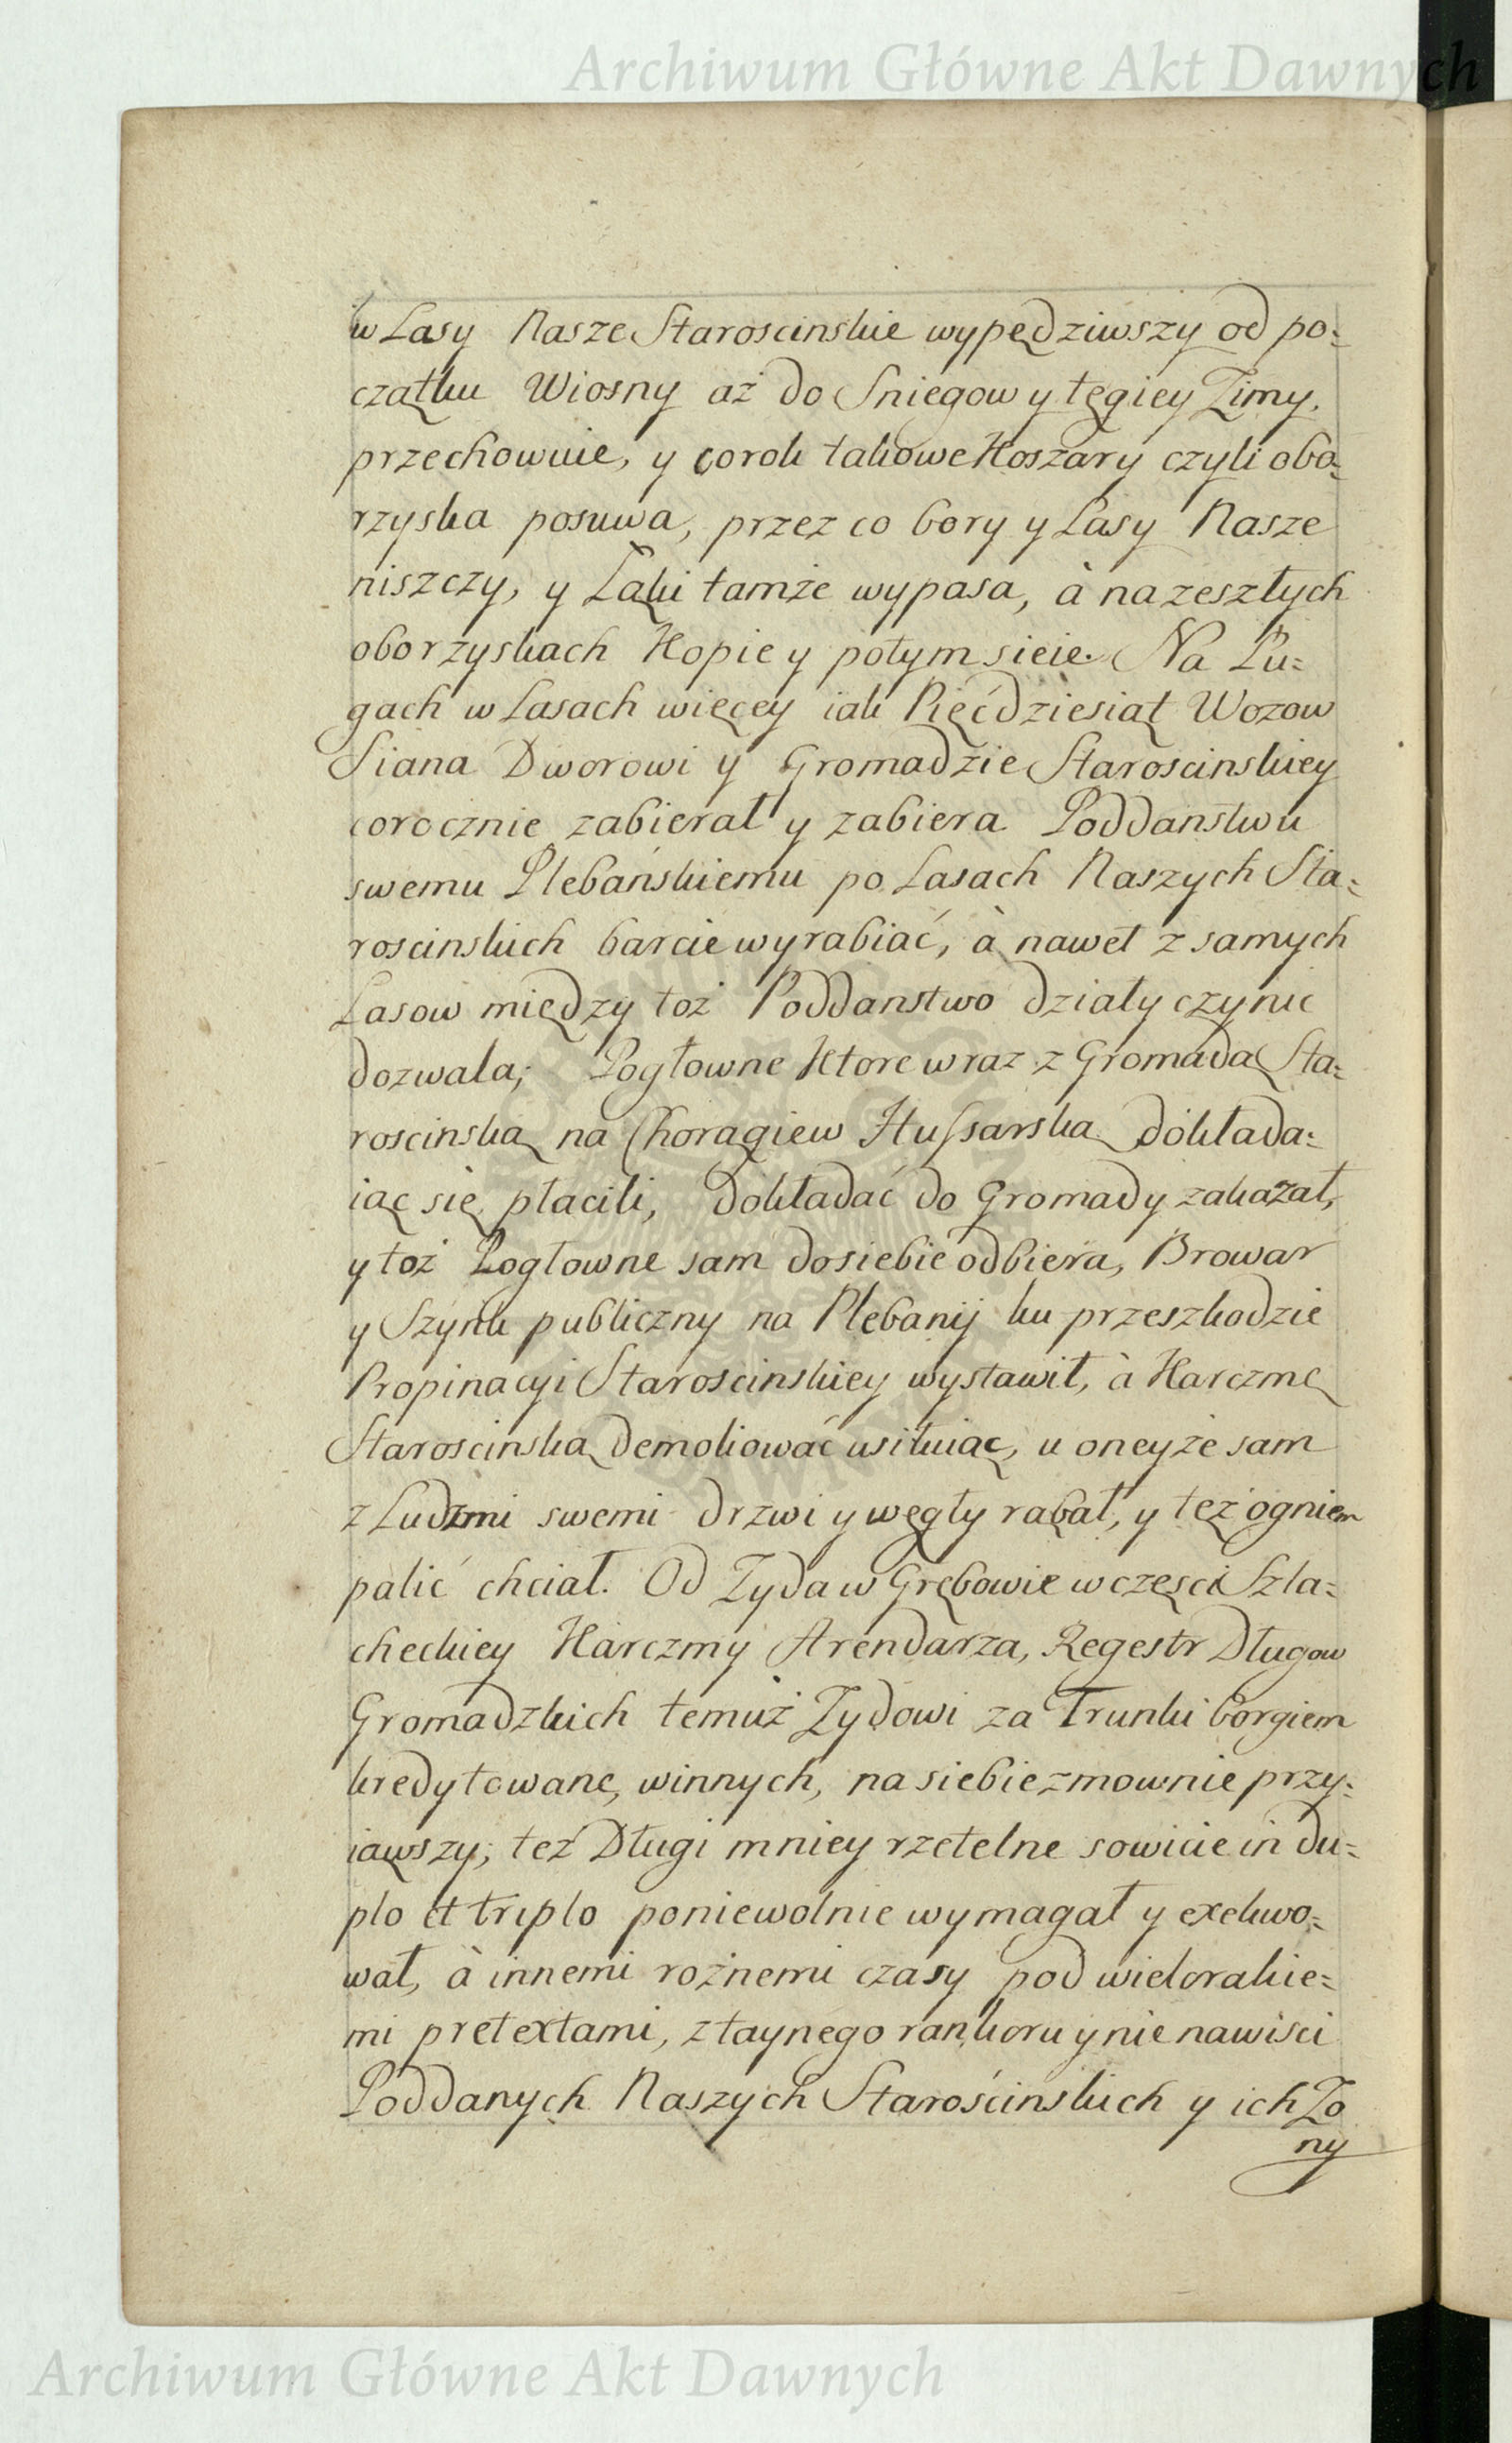 Archiwum Główne Akt Dawnych
w Lasy Nasze Staroscinskie wypędziwszy od po=
czątku Wiosny aż do Sniegow y tęgiey Zimy,
przechowuie, y corok takowe Koszary czyli obo=
rzyska posuwa, przez co bory y Lasy Nasze
niszczy, y Łąki tamże wypasa, à na zeszłych
oborzyskach Kopie y potym sieie. Na Łu=
gach w Lasach więcey iak Pięćdziesiąt Wozow
Siana Dworowi y Gromadzie Staroscinskiey
corocznie zabierał y zabiera Poddanstwu
swemu Plebańskiemu po Lasach Naszych Sta=
roscinskich barcie wyrabiać, à nawet z samych
Lasow między toż Poddanstwo działy czynic
dozwala; Pogłowne Ktore wraz z Gromadą Sta=
roscinską na Chorągiew Hussarską dokłada=
iąc się płacili, dokładać do Gromady zakazał,
y toż Pogłowne sam do siebie odbiera, Browar
y Szynk publiczny na Plebanij ku przeszkodzie
Propinacyi Staroscinskiey wystawił, à Karczmę
Staroscinską demoliować usiłuiąc, u oneyże sam
z Ludzmi swemi drzwi y węgły rąbał, y też ogniem
palić chciał. Od Zyda w Grębowie w częsci Szla=
checkiey Karczmy Arendarza, Regestr Długow
Gromadzkich temuż Zydowi za Trunki borgiem
kredytowane, winnych, na siebie zmownie przy=
iąwszy; też Długi mniey rzetelne sowicie in du=
plo et triplo poniewolnie wymagał y exekwo=
wał, à innemi rożnemi czasy pod wielorakie=
mi pretextami, z taynego rankoru y nienawisci
Poddanych Naszych Starościnskich y ich Zo
ny
Archiwum Główne Akt Dawnych